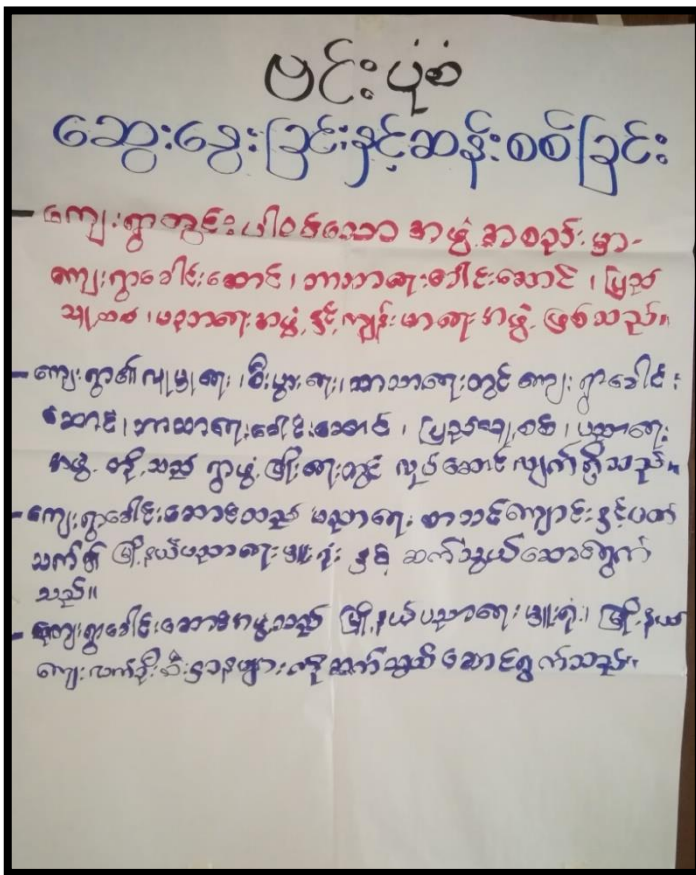 ဗင်းပုံစံ
ဆွေးနွေးခြင်းနှင့်ဆန်းစစ်ခြင်း
- ကျေးရွာတွင်း ပါဝင်သော အဖွဲ့ အစည်း မှာ-
ကျေးရွာခေါင်းဆောင်၊ ဘာသာရေးခေါင်းဆောင်၊ ပြည်
သူ့စစ်၊ ပညာရေးအဖွဲ့ နှင့် ကျန်းမာရေးအဖွဲ့ ဖြစ်သည်။
- ကျေးရွာ၏ လူမှုရေး၊ စီးပွားရေး၊ ဘာသာရေးတွင် ကျေးရွာခေါင်း
ဆောင်၊ ဘာသာရေးခေါင်းဆောင်၊ ပြည်သူ့စစ်၊ ပညာရေး
အဖွဲ့ တို့သည် ရွာဖွံ့ဖြိုးရေးတွင် လုပ်ဆောင်လျက်ရှိသည်။
- ကျေးရွာခေါင်းဆောင်သည် ပညာရေး စာသင်ကျောင်းနှင့်ပတ်
သက်၍ မြို့နယ်ပညာရေးမှူးရုံး နှင့် ဆက်သွယ်ဆောင်ရွက်
သည်။
- ကျေးရွာခေါင်းဆောင်အဖွဲ့သည် မြို့နယ်ပညာရေးမှူးရုံး၊ မြို့နယ်
ကျေးလက်ဦးစီးဌာနများကို ဆက်သွယ် ဆောင်ရွက်သည်။